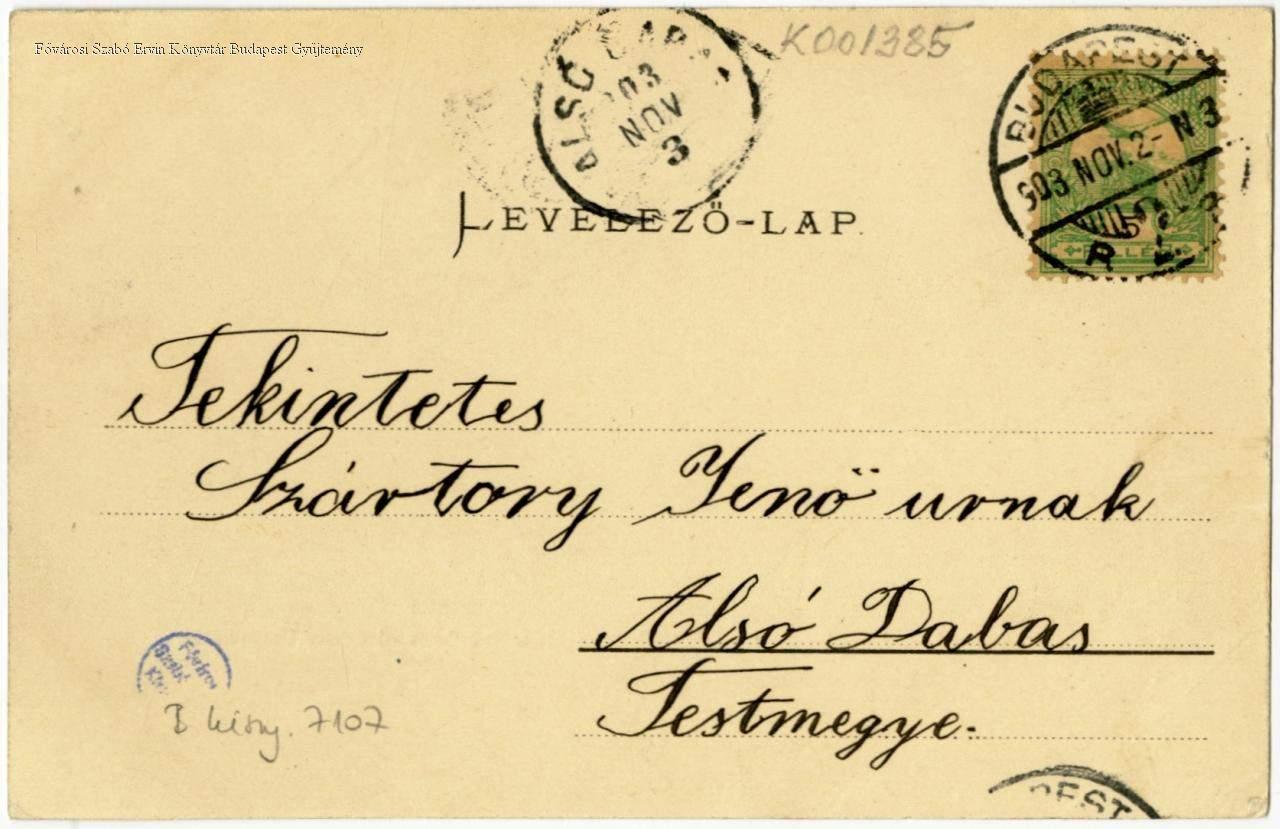 Fővárosi Szabó Ervin Könyvtár Budapest Gyűjtemény
K001385
ALSÓ DABAS
903
NOV
3
BUDAPEST
903 NOV. 2 - N 3
LEVELEZŐ-LAP.
Tekintetes
Szártory Jenő urnak
Alsó Dabas
Testmegye.
Szabó
B 7107
PEST